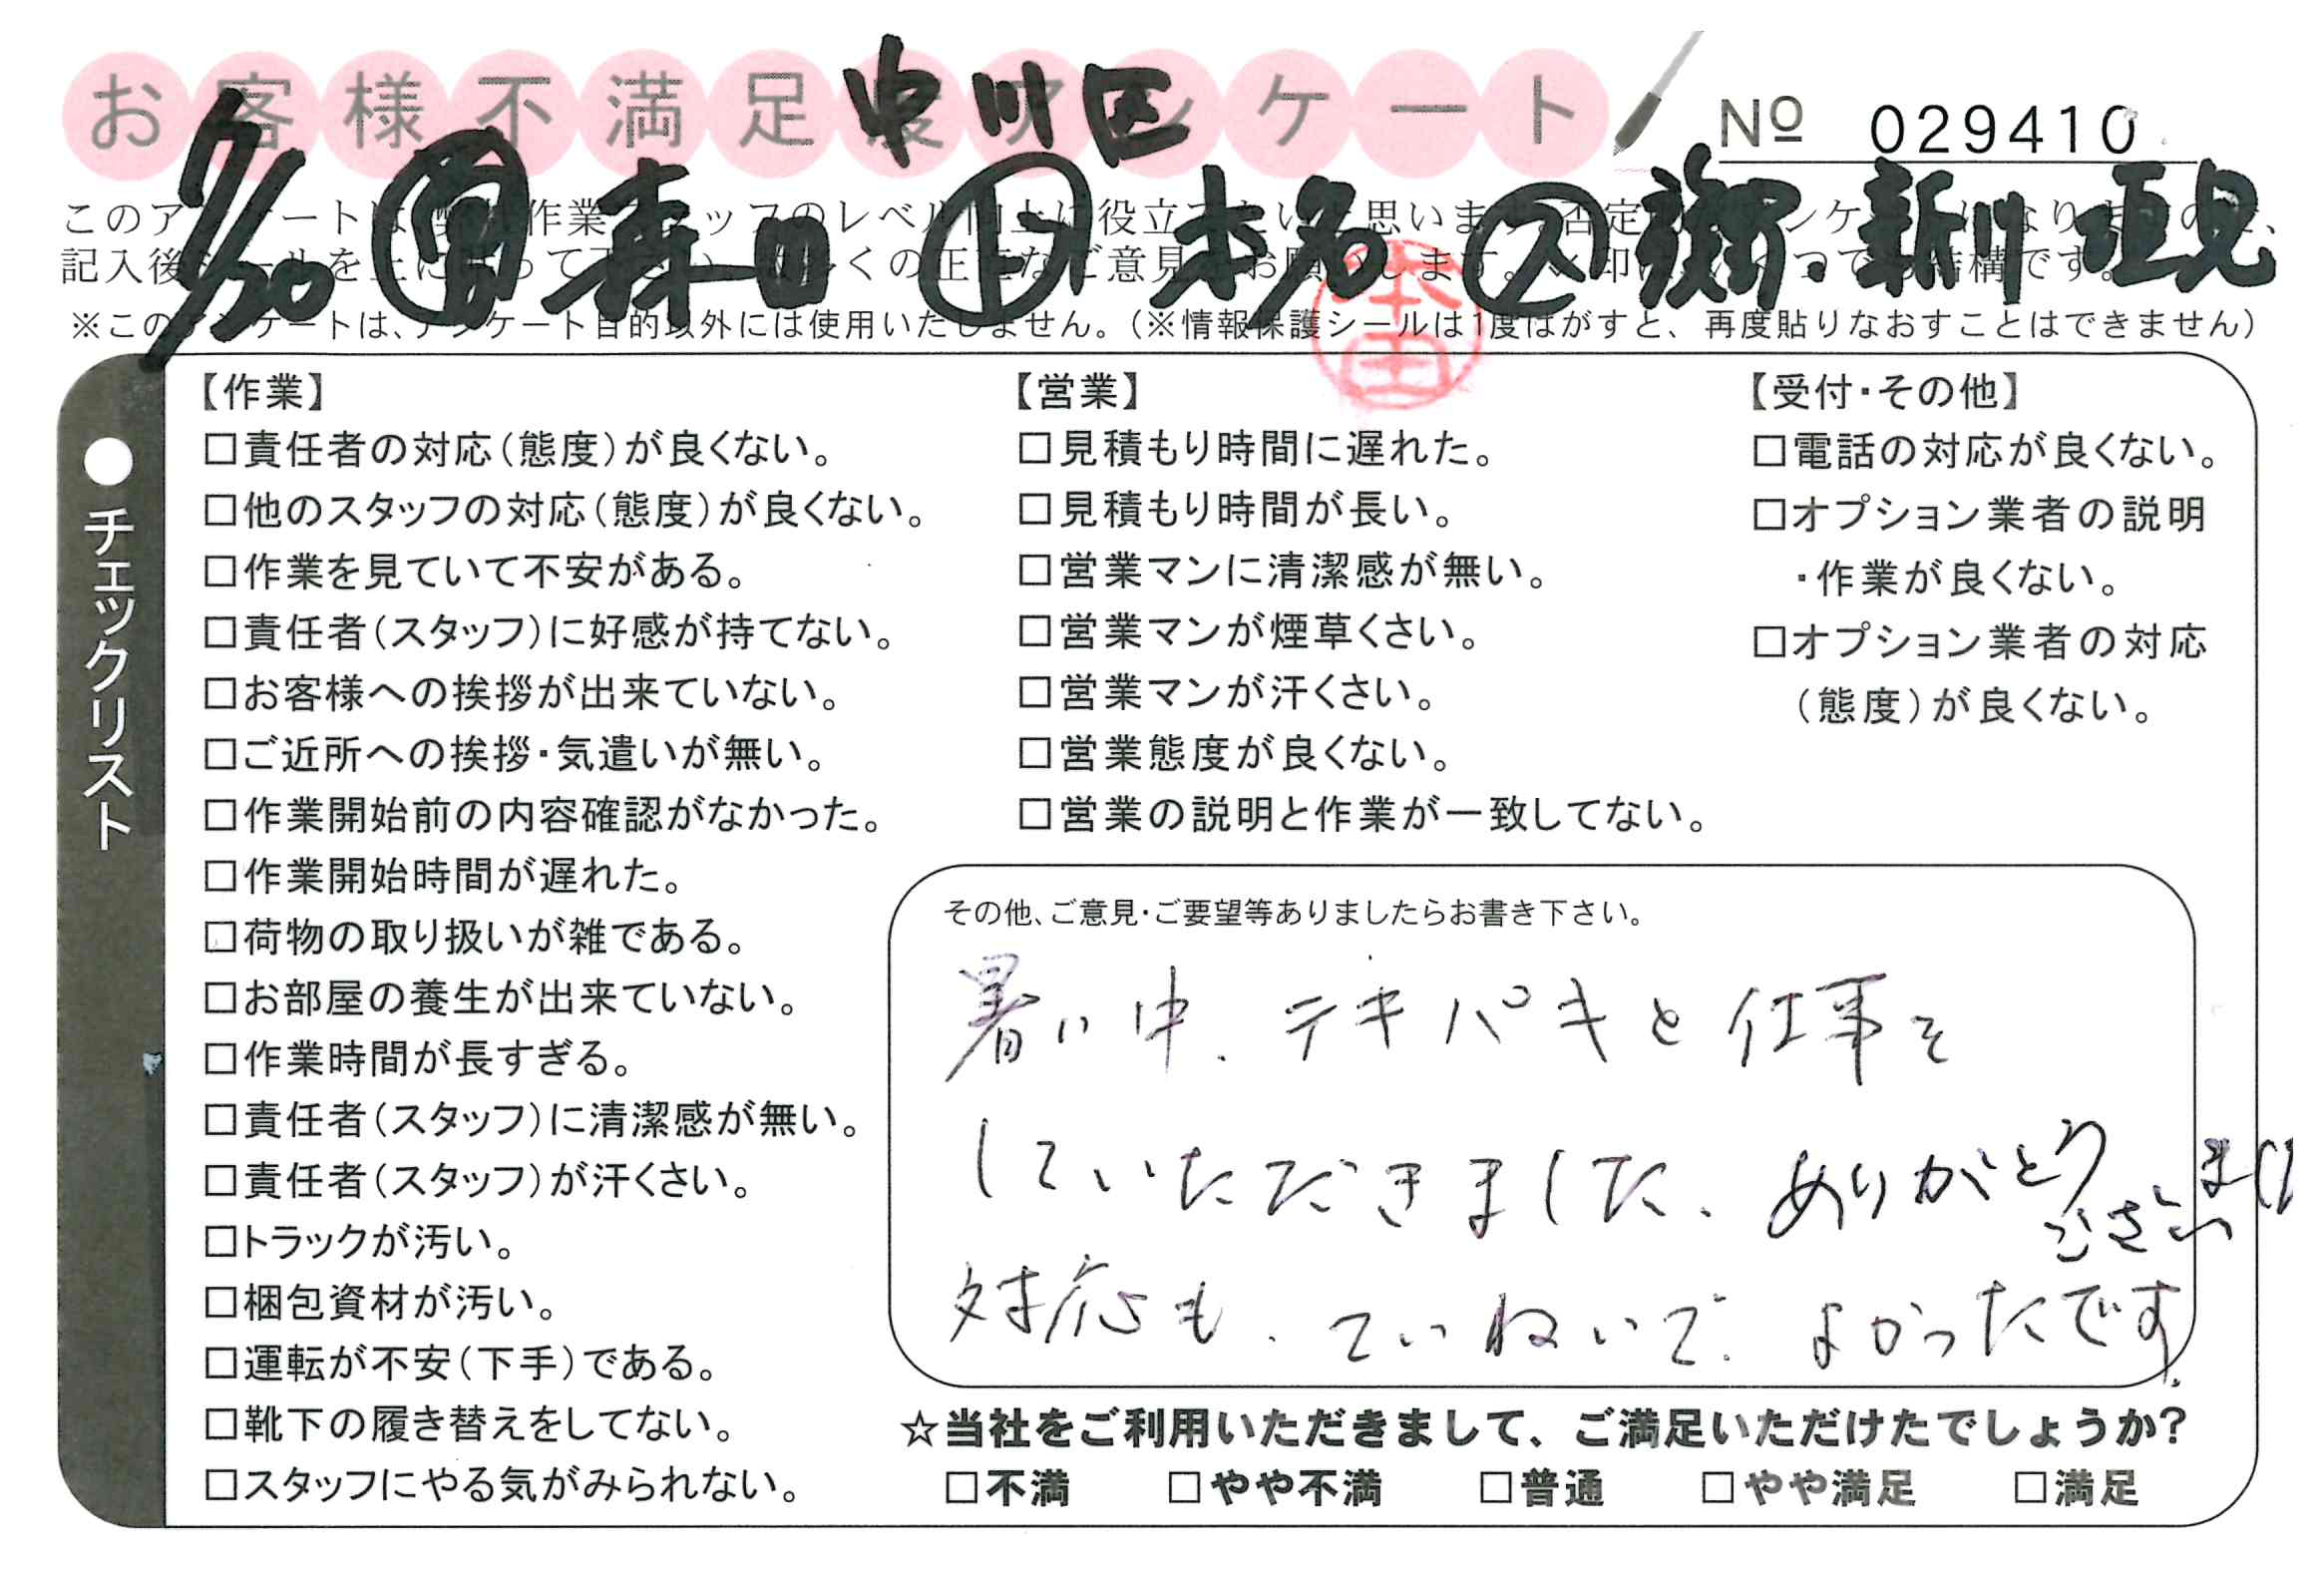 お客様不満足度アンケート
中川区
No 029410
7/20 営 森田 上 本名 入 ・新川
※このアンケートは、アンケート目的以外には使用いたしません。(※情報保護シールは1度はがすと、再度貼りなおすことはできません)
本田
●チェックリスト
【作業】
□責任者の対応(態度)が良くない。
□他のスタッフの対応(態度)が良くない。
□作業を見ていて不安がある。
□責任者(スタッフ)に好感が持てない。
□お客様への挨拶が出来ていない。
□ご近所への挨拶・気遣いが無い。
□作業開始前の内容確認がなかった。
□作業開始時間が遅れた。
□荷物の取り扱いが雑である。
□お部屋の養生が出来ていない。
□作業時間が長すぎる。
□責任者(スタッフ)に清潔感が無い。
□責任者(スタッフ)が汗くさい。
□トラックが汚い。
□梱包資材が汚い。
□運転が不安(下手)である。
□靴下の履き替えをしてない。
□スタッフにやる気がみられない。
【営業】
□見積もり時間に遅れた。
□見積もり時間が長い。
□営業マンに清潔感が無い。
□営業マンが煙草くさい。
□営業マンが汗くさい。
□営業態度が良くない。
□営業の説明と作業が一致してない。
【受付・その他】
□電話の対応が良くない。
□オプション業者の説明
・作業が良くない。
□オプション業者の対応
(態度)が良くない。
その他、ご意見・ご要望等ありましたらお書き下さい。
暑い中、テキパキと仕事を
していただきました、ありがとう
ございま
対応も、ていねいで、よかったです。
☆当社をご利用いただきまして、ご満足いただけたでしょうか?
□不満 □やや不満 □普通 □やや満足 □満足